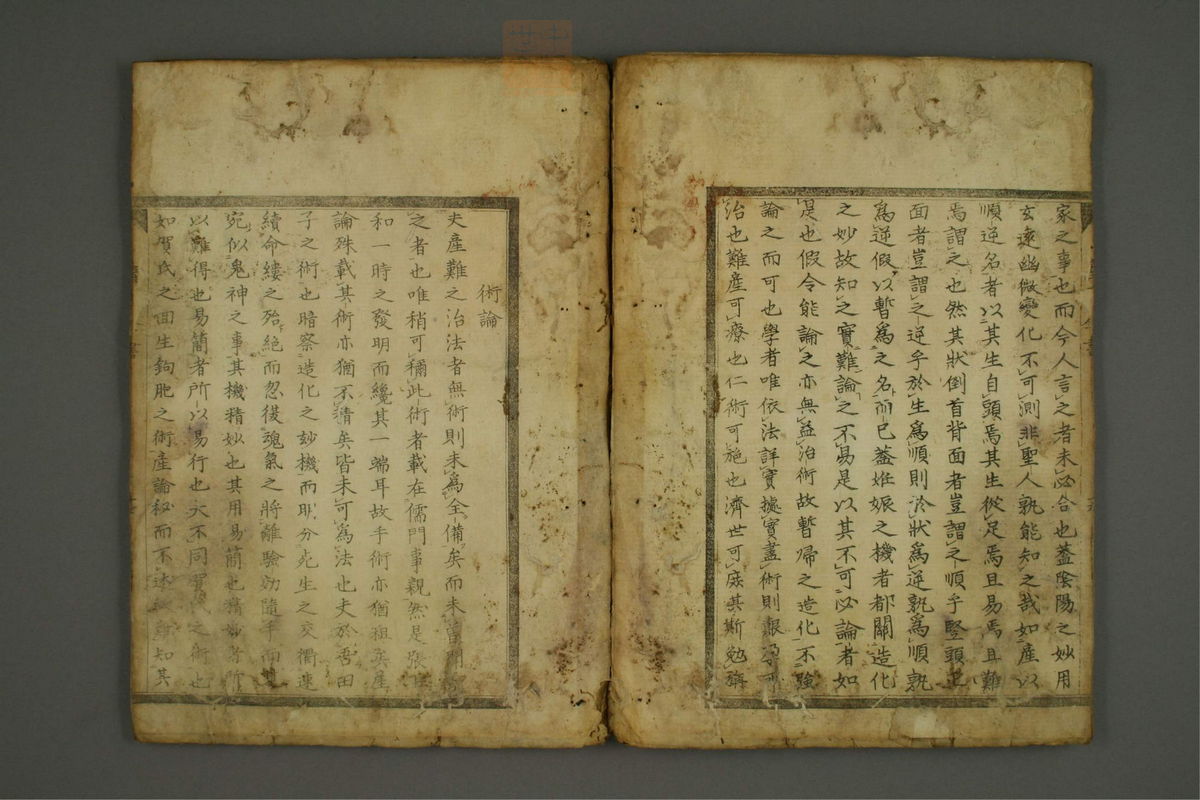 家之事也而今人言之者未必合也蓋陰陽之妙用
玄遠幽微變化不可測非聖人孰能知之哉如産以
順逆名者以其生自頭焉其生從足焉且易焉且難
焉謂之也然其狀倒首背面者豈謂之順乎豎頭正
面者豈謂之逆乎於生爲順則於狀爲逆孰爲順孰
爲逆假以暫爲之名而已蓋姙娠之機者都關造化
之妙故知之實難論之不易是以其不可必論者如
是也假令能論之亦無益治術故暫歸之造化不強
論之而可也學者唯依法詳實據實盡術則艱
治也難産可療也仁術可施也濟世可庶其斯勉旃
術論
夫産難之治法者無術則未爲全備矣而未曽聞
之者也唯稍可稱此術者載在儒門事親然是張
和一時之發明而纔其一端耳故手術亦猶粗矣産
論殊載其術亦猶不精矣皆未可爲法也夫於吾田
子之術也暗察造化之妙機而明分死生之交衢連
續命縷之殆絶而忽復魂氣之將離驗効隨手而
宛似鬼神之事其機精妙也其用易簡也精妙者所
以難得也易簡者所以易行也大不同賀氏之術也
如賀氏之回生鉤胞之術産論秘而不述 知其